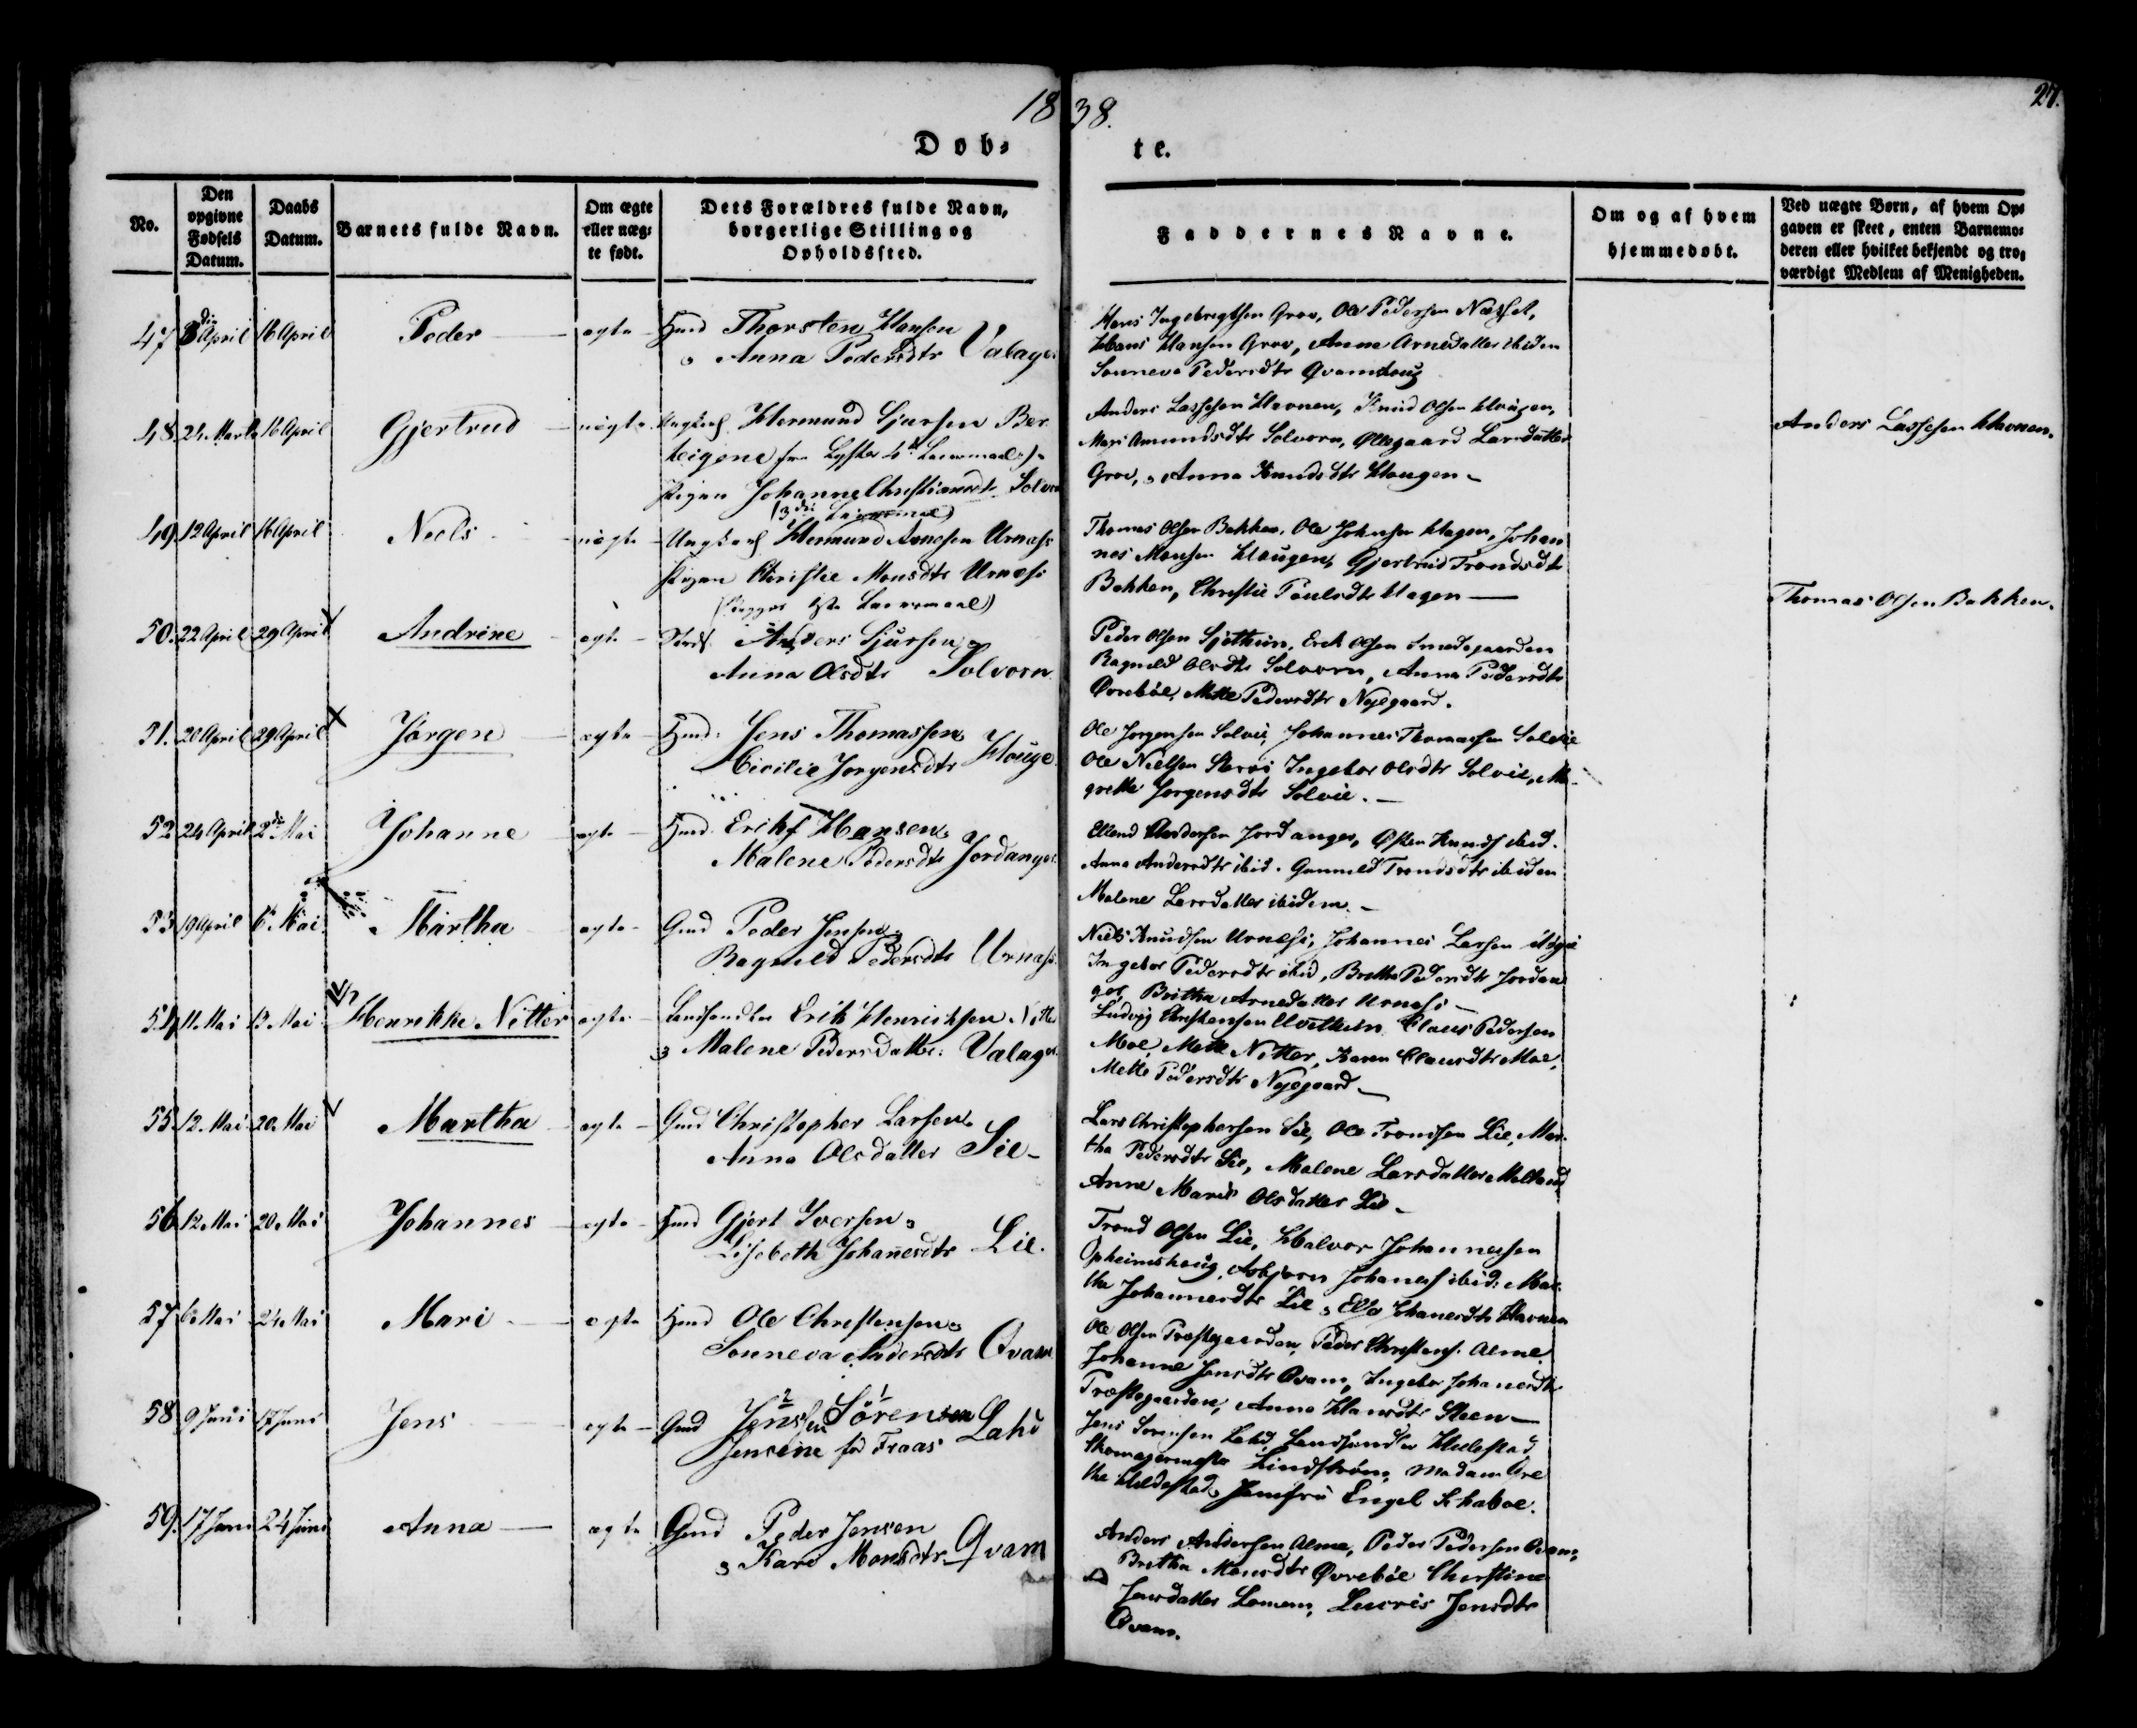 1838.
27.
Døb-
te.
No.
Den opgivne Fødsels Datum.
Daabs Datum.
Barnets fulde Navn.
Om ægte eller uæg-
te født.
Dets Forældres fulde Navn,
borgerlige Stilling og
Opholdssted.
Faddernes Navne.
Om og af hvem
hjemmedøbt.
Ved uægte Børn, af hvem Op-
gaven er skeet, enten Barnemo-
deren eller hvilket bekjendt og tro-
værdigt Medlem af Menigheden.
47 April 16 April Peder ægte Thorsten Hansen
Anna Pedersdtr
Hans Ingebregtsen Grov, Ole Pedersen
Hans Hansen Grov, Anna Arnedatter ibidem
Sonneva Pedersdtr Qvamshoug
48. 24 Marts 16 April Gjertrud uægte Ungkarl Hermund Sjursen Ber-
teigene fra Lyster
Pigen Johanne Solvorn
(3die Leiermaal)
Anders Lassesen Havnen, Knud Olsen Hougen,
Mari Amundsdtr Solvorn, Øllegaard Larsdatter
Grov, Anna Knudsdtr Hougen
Anders Lassesen Havnen.
49 12 April 16 April Niels uægte Ungkarl Hermund Urnæss
Pigen Christie Monsdtr Urnæss
(Begges 1ste Leiermaal)
Thomas Olsen Bakken, Ole Johnsen Hagen, Johan-
nes Monsen Hougen, Gjertrud Trondsdtr
Bakken, Christie Poulsdtr Hagen
Thomas Olsen Bakken.
50. 22 April 29 April Andrine ægte Anders Sjursen
Anna Olsdtr Solvorn
Peder Olsen Sjøtheim, Erik Olsen Smedegaarden
Ragnild Olsdtr Solvorn, Anna Pedersdtr
Øvrebøe, Mette Pedersdtr Nyegaard.
51. 20 April 29 April Jørgen ægte Jens Thomassen
Cicilie Jørgensdtr Houge
Ole Jørgensen Solvie, Johannes Thomassen Solvie
Ole Nielsen Ingebor Olsdtr Solvie, Ma-
grethe Jørgensdtr Solvie.
52 24 April 2den Mai Johanne ægte Erik Hansen
Malene Pedersdtr Jordanger
Ellend Andersen Jordanger, Østen ibid.
Anna Andersdtr ibid. Gunnild Trondsdtr ibidem
Malene Larsdatter ibidem.
53 19 April 6te Mai Martha ægte Gmd Peder Jensen
Ragnild Pedersdtr Urnæss
Niels Knudsen Urnæss, Johannes Larsen
Ingebor Pedersdtr ibid, Brithe Pedersdtr Jordan-
ger, Britha Arnedatter Urnæss
54 11. Mai 13. Mai Henrikke Nitter ægte Landhandler Erik Henrichsen Nitter
Malene Pedersdatter
Ludvig Christensen Claus Pedersen
Moe, Mette Nitter, Karen Clausdtr Moe,
Mette Pedersdtr Nyegaard
55. 12. Mai 20. Mai Martha ægte Gmd Christopher Larsen
Anna Olsdatter Lie
Lars Christophersen Lie, Ole Tronsen Lie, Mar-
tha Pedersdtr Lie, Malene Larsdatter
Anne Marie Olsdatter Lie
56 12. Mai 20. Mai Johannes ægte Gjert Iversen
Lisebeth Johanesdtr Lie.
Trond Olsen Lie, Halvor Johannesen
Opheimshoug, Asbjørn ibid: Mar-
tha Johannesdtr Lie Johanesdtr Havnen
57 6. Mai 24. Mai Mari ægte Ole Christensen
Sonneva Andersdtr Qvam
Ole Olsen Præstegaarden, Peder Alme
Johanne Jensdtr Qvam, Ingebor Johanesdtr
Præstegaarden, Anna Hansdtr Steen
58 9 Juni 17 Juni Jens ægte Gmd Jens Sørensen
Jensine fød Fraas Lahd
Jens Sørensen Lahd, Landhandler
Skomagermester Lindstrøm, Madam Gre-
the Jomfru Engel Schabve.
59. 17 Juni 24 Juni Anna ægte Gmd Peder Jensen
Kari Monsdtr Qvam
Anders Andersen Alme, Peder Pedersen Qvam,
Britha Monsdtr Øvrebøe Christine
Jensdatter Lomem, Jensdtr
Qvam.